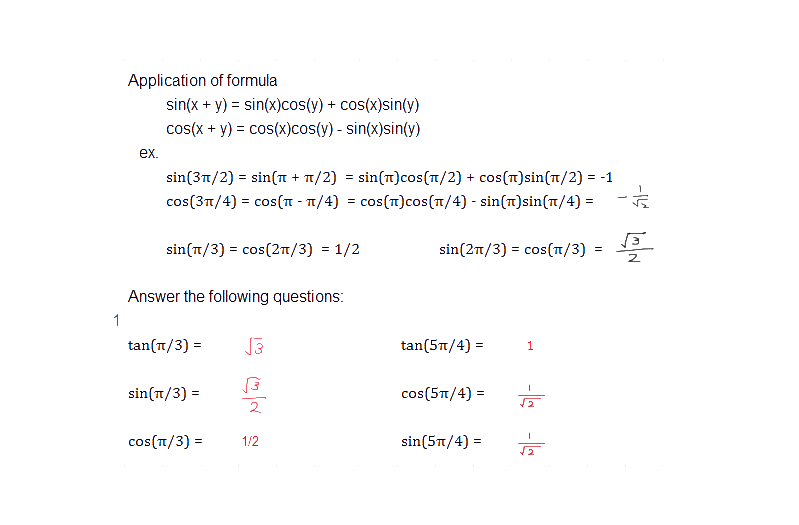 Application of formula
sin(x + y) = sin(x)cos(y) + cos(x)sin(y)
cos(x + y) = cos(x)cos(y) - sin(x)sin(y)
ex.
sin(3π/2) = sin(π + π/2) = sin(π)cos(π/2) + cos(π)sin(π/2) = -1
cos(3π/4) = cos(π - π/4) = cos(π)cos(π/4) - sin(π)sin(π/4) = -1/√2
sin(π/3) = cos(2π/3) = 1/2 sin(2π/3) = cos(π/3) = √3/2
Answer the following questions:
1
tan(π/3) = √3 tan(5π/4) = 1
sin(π/3) = √3/2 cos(5π/4) = 1/√2
cos(π/3) = 1/2 sin(5π/4) = 1/√2